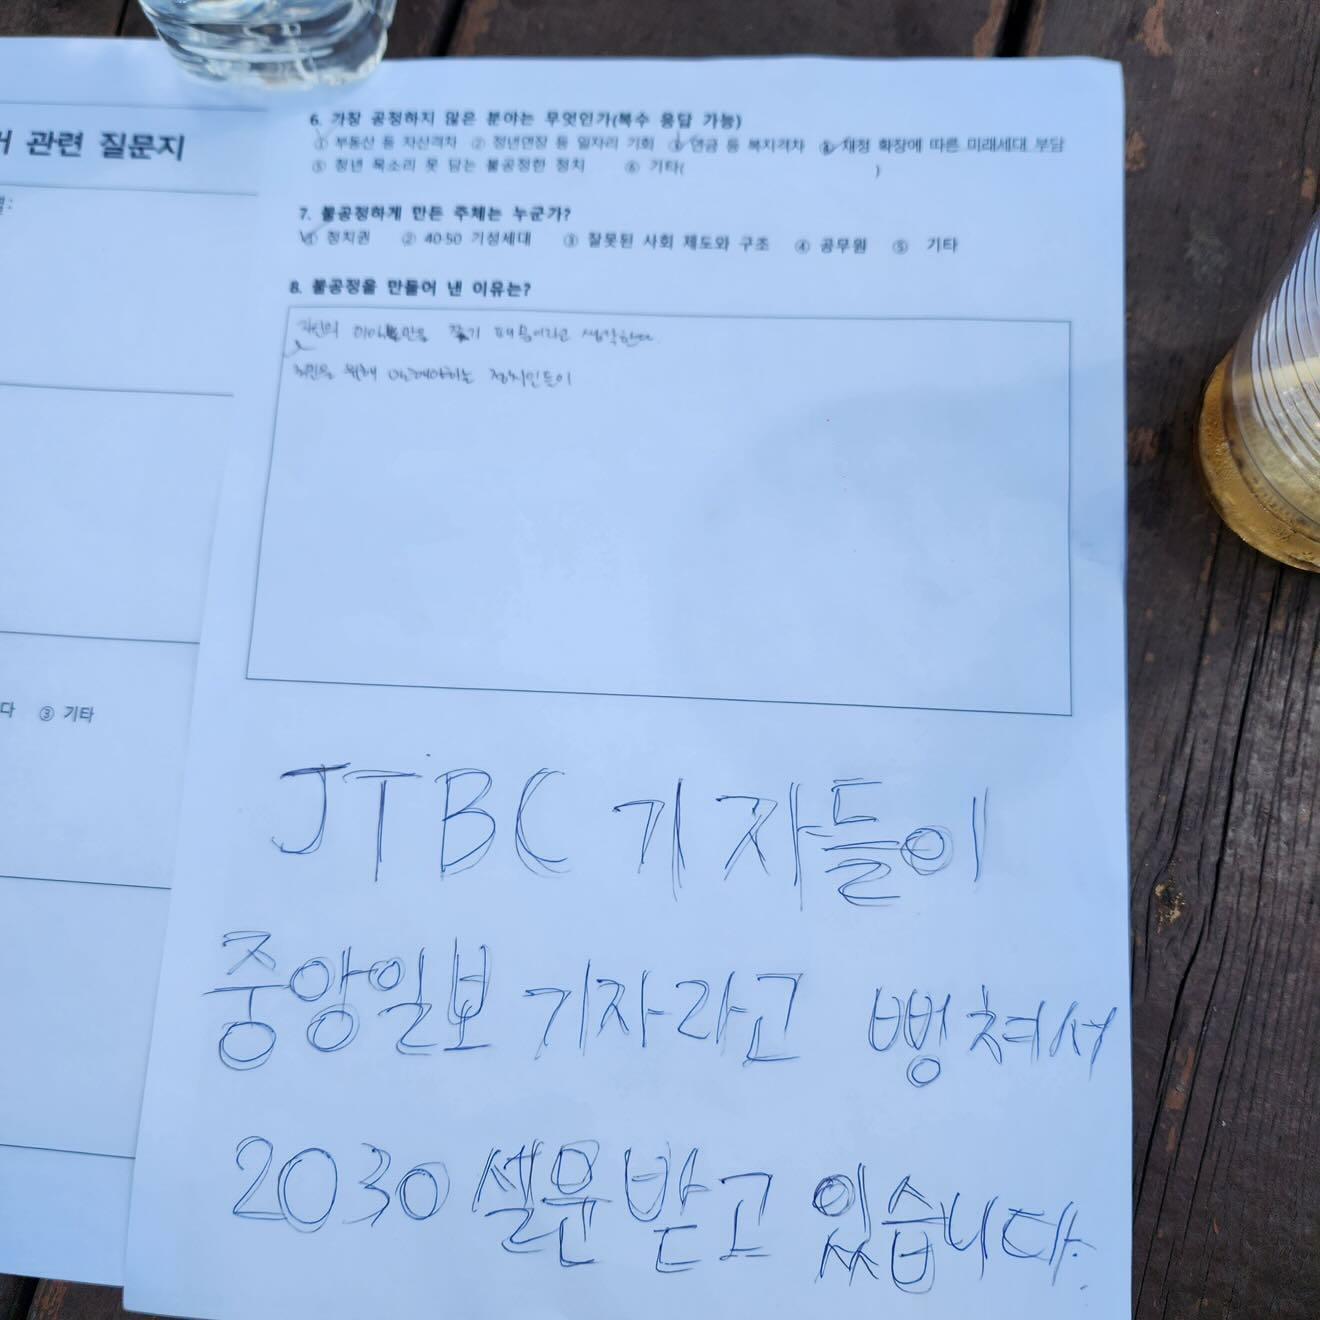 거 관련 질문지
별:
다 ③ 기타
6. 가장 공정하지 않은 분야는 무엇인가(복수 응답 가능)
① 부동산 등 자산격차 ② 정년연장 등 일자리 기회 ③ 연금 등 복지격차 ④ 재정 확장에 따른 미래세대 부담
⑤ 청년 목소리 못 담는 불공정한 정치 ⑥ 기타( )
7. 불공정하게 만든 주체는 누군가?
① 정치권 ② 40·50 기성세대 ③ 잘못된 사회 제도와 구조 ④ 공무원 ⑤ 기타
8. 불공정을 만들어 낸 이유는?
자신의 때문이라고 생각한다
위해 정치인들이
JTBC 기자들이
중앙일보 기자라고 뻥쳐서
2030 설문받고 있습니다.